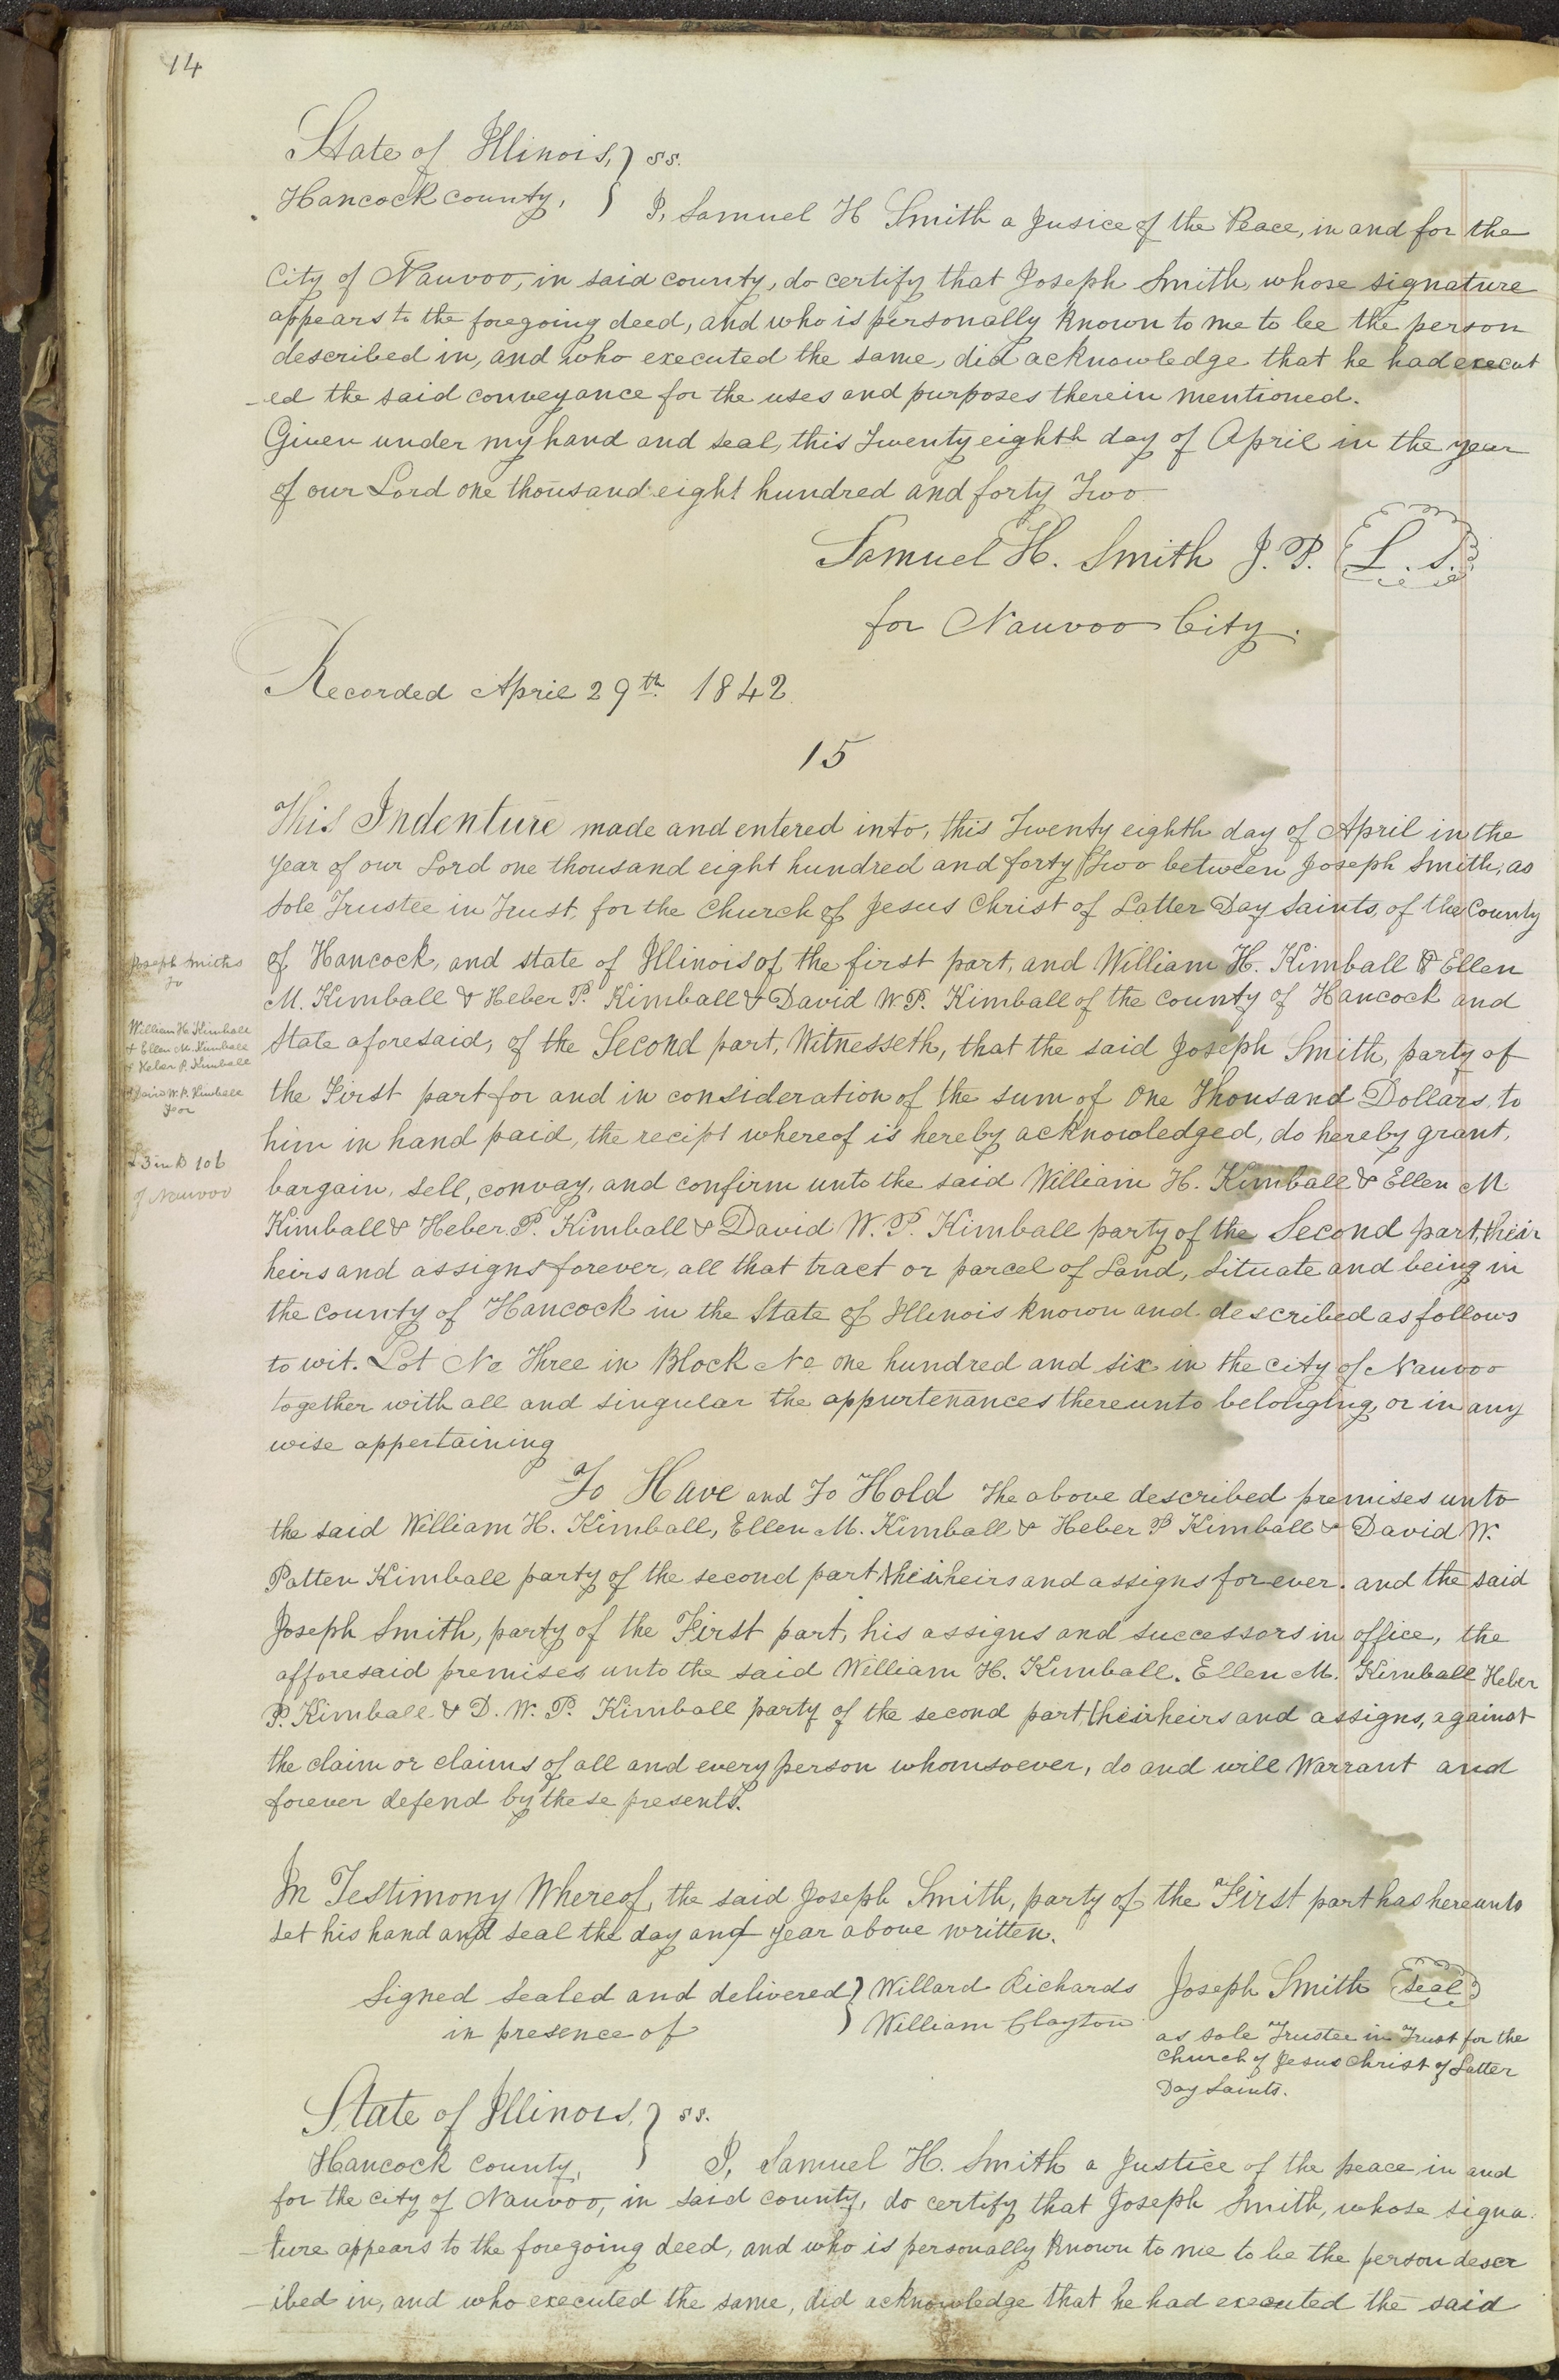 14
State of Illinois, } ss.
Hancock county, } I, Samuel H Smith a Jusice of the Peace, in and for the
City of Nauvoo, in said county, do certify that Joseph Smith, whose signature
appears to the foregoing deed, and who is personally known to me to be the person
described in, and who executed the same, did acknowledge that he had execut
-ed the said conveyance for the uses and purposes therein mentioned.
Given under my hand and seal, this Twenty eighth day of April in the year
of our Lord one thousand eight hundred and forty Two
Samuel H. Smith J. P. L. S.
for Nauvoo City.
Recorded April 29th 1842.
15
This Indenture made and entered into, this Twenty eighth day of April in the
Year of our Lord one thousand eight hundred and forty Two between Joseph Smith, as
Sole Trustee in Trust, for the Church of Jesus Christ of Latter Day Saints, of the County
of Hancock, and state of Illinois of the first part, and William H. Kimball & Ellen
M. Kimball & Heber P. Kimball & David W. P. Kimball of the County of Hancock and
State aforesaid, of the Second part, Witnesseth, that the said Joseph Smith, party of
the First part for and in consideration of the sum of One Thousand Dollars, to
him in hand paid, the recipt whereof is hereby acknowledged, do hereby grant,
bargain, sell, convay, and confirm unto the said William H. Kimball & Ellen M.
Kimball & Heber P. Kimball & David W. P. Kimball party of the Second part, their
heirs and assigns forever, all that tract or parcel of Land, Situate and being in
the county of Hancock in the State of Illinois known and described as follows
to wit. Lot No Three in Block No one hundred and six in the city of Nauvoo
together with all and singular the appurtenances thereunto belonging, or in any
wise appertaining
To Have and To Hold the above described premises unto
the said William H. Kimball, Ellen M. Kimball & Heber P Kimball & David W.
Patten Kimball party of the second part their heirs and assigns for ever. and the said
Joseph Smith, party of the First part, his assigns and successors in office, the
afforesaid premises unto the said William H. Kimball. Ellen M. Kimball Heber
P. Kimball & D. W. P. Kimball party of the second part, their heirs and assigns, against
the claim or claims of all and every person whomsoever, do and will Warrant and
forever defend by these presents.
In Testimony Whereof, the said Joseph Smith, party of the First part has hereunto
set his hand and seal the day and year above written.
Signed Sealed and delivered } Willard Richards Joseph Smith Seal
in presence of } William Clayton
as sole Trustee in Trust for the
Church of Jesus Christ of Latter
Day Saints.
State of Illinois, } ss.
Hancock county, } I, Samuel H. Smith a Justice of the peace in and
for the city of Nauvoo, in said county, do certify that Joseph Smith, whose signa-
-ture appears to the foregoing deed, and who is personally known to me to be the person descr
-ibed in, and who executed the same, did acknowledge that he had executed the said
Joseph Smiths
To
William H. Kimball
& Ellen M. Kimball
& Heber P. Kimball
& David W. P. Kimball
For
L 3 in B 106
of Nauvoo